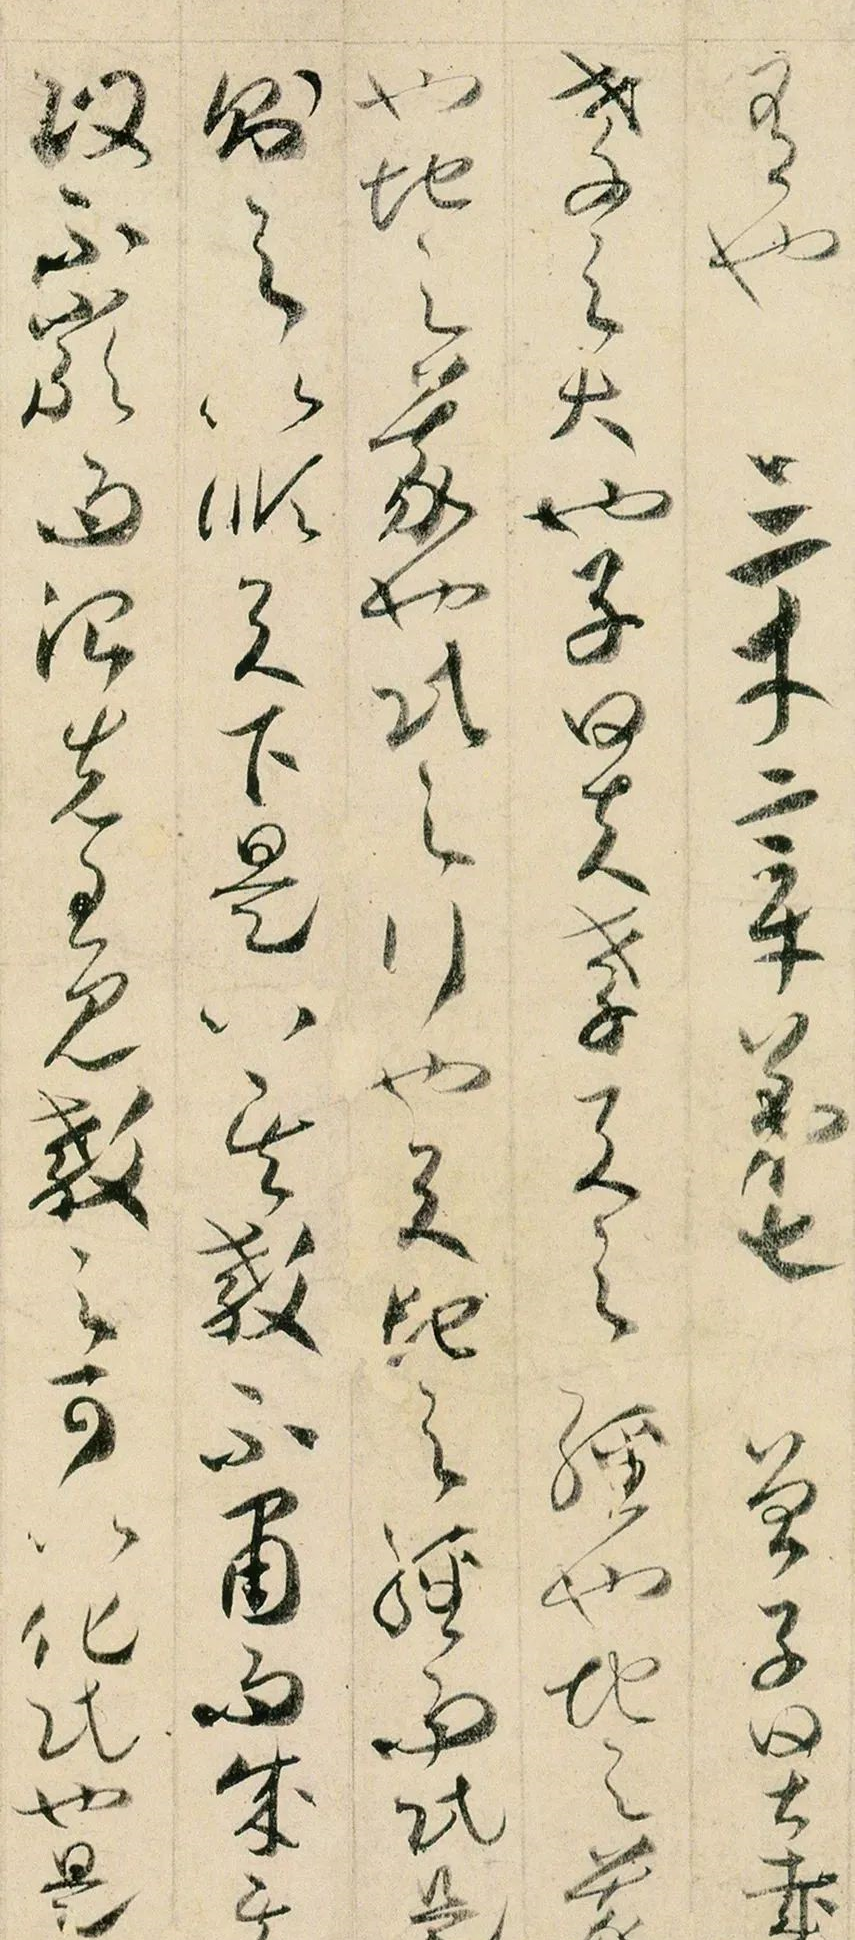 有也　三才章第七　曾子曰甚哉
孝之大也子曰夫孝天之經也地之義
也地之義也民之行也天地之經而民是
則之以順天下是以其教不肅而成其
政不嚴而治先王見教之可以化民也是